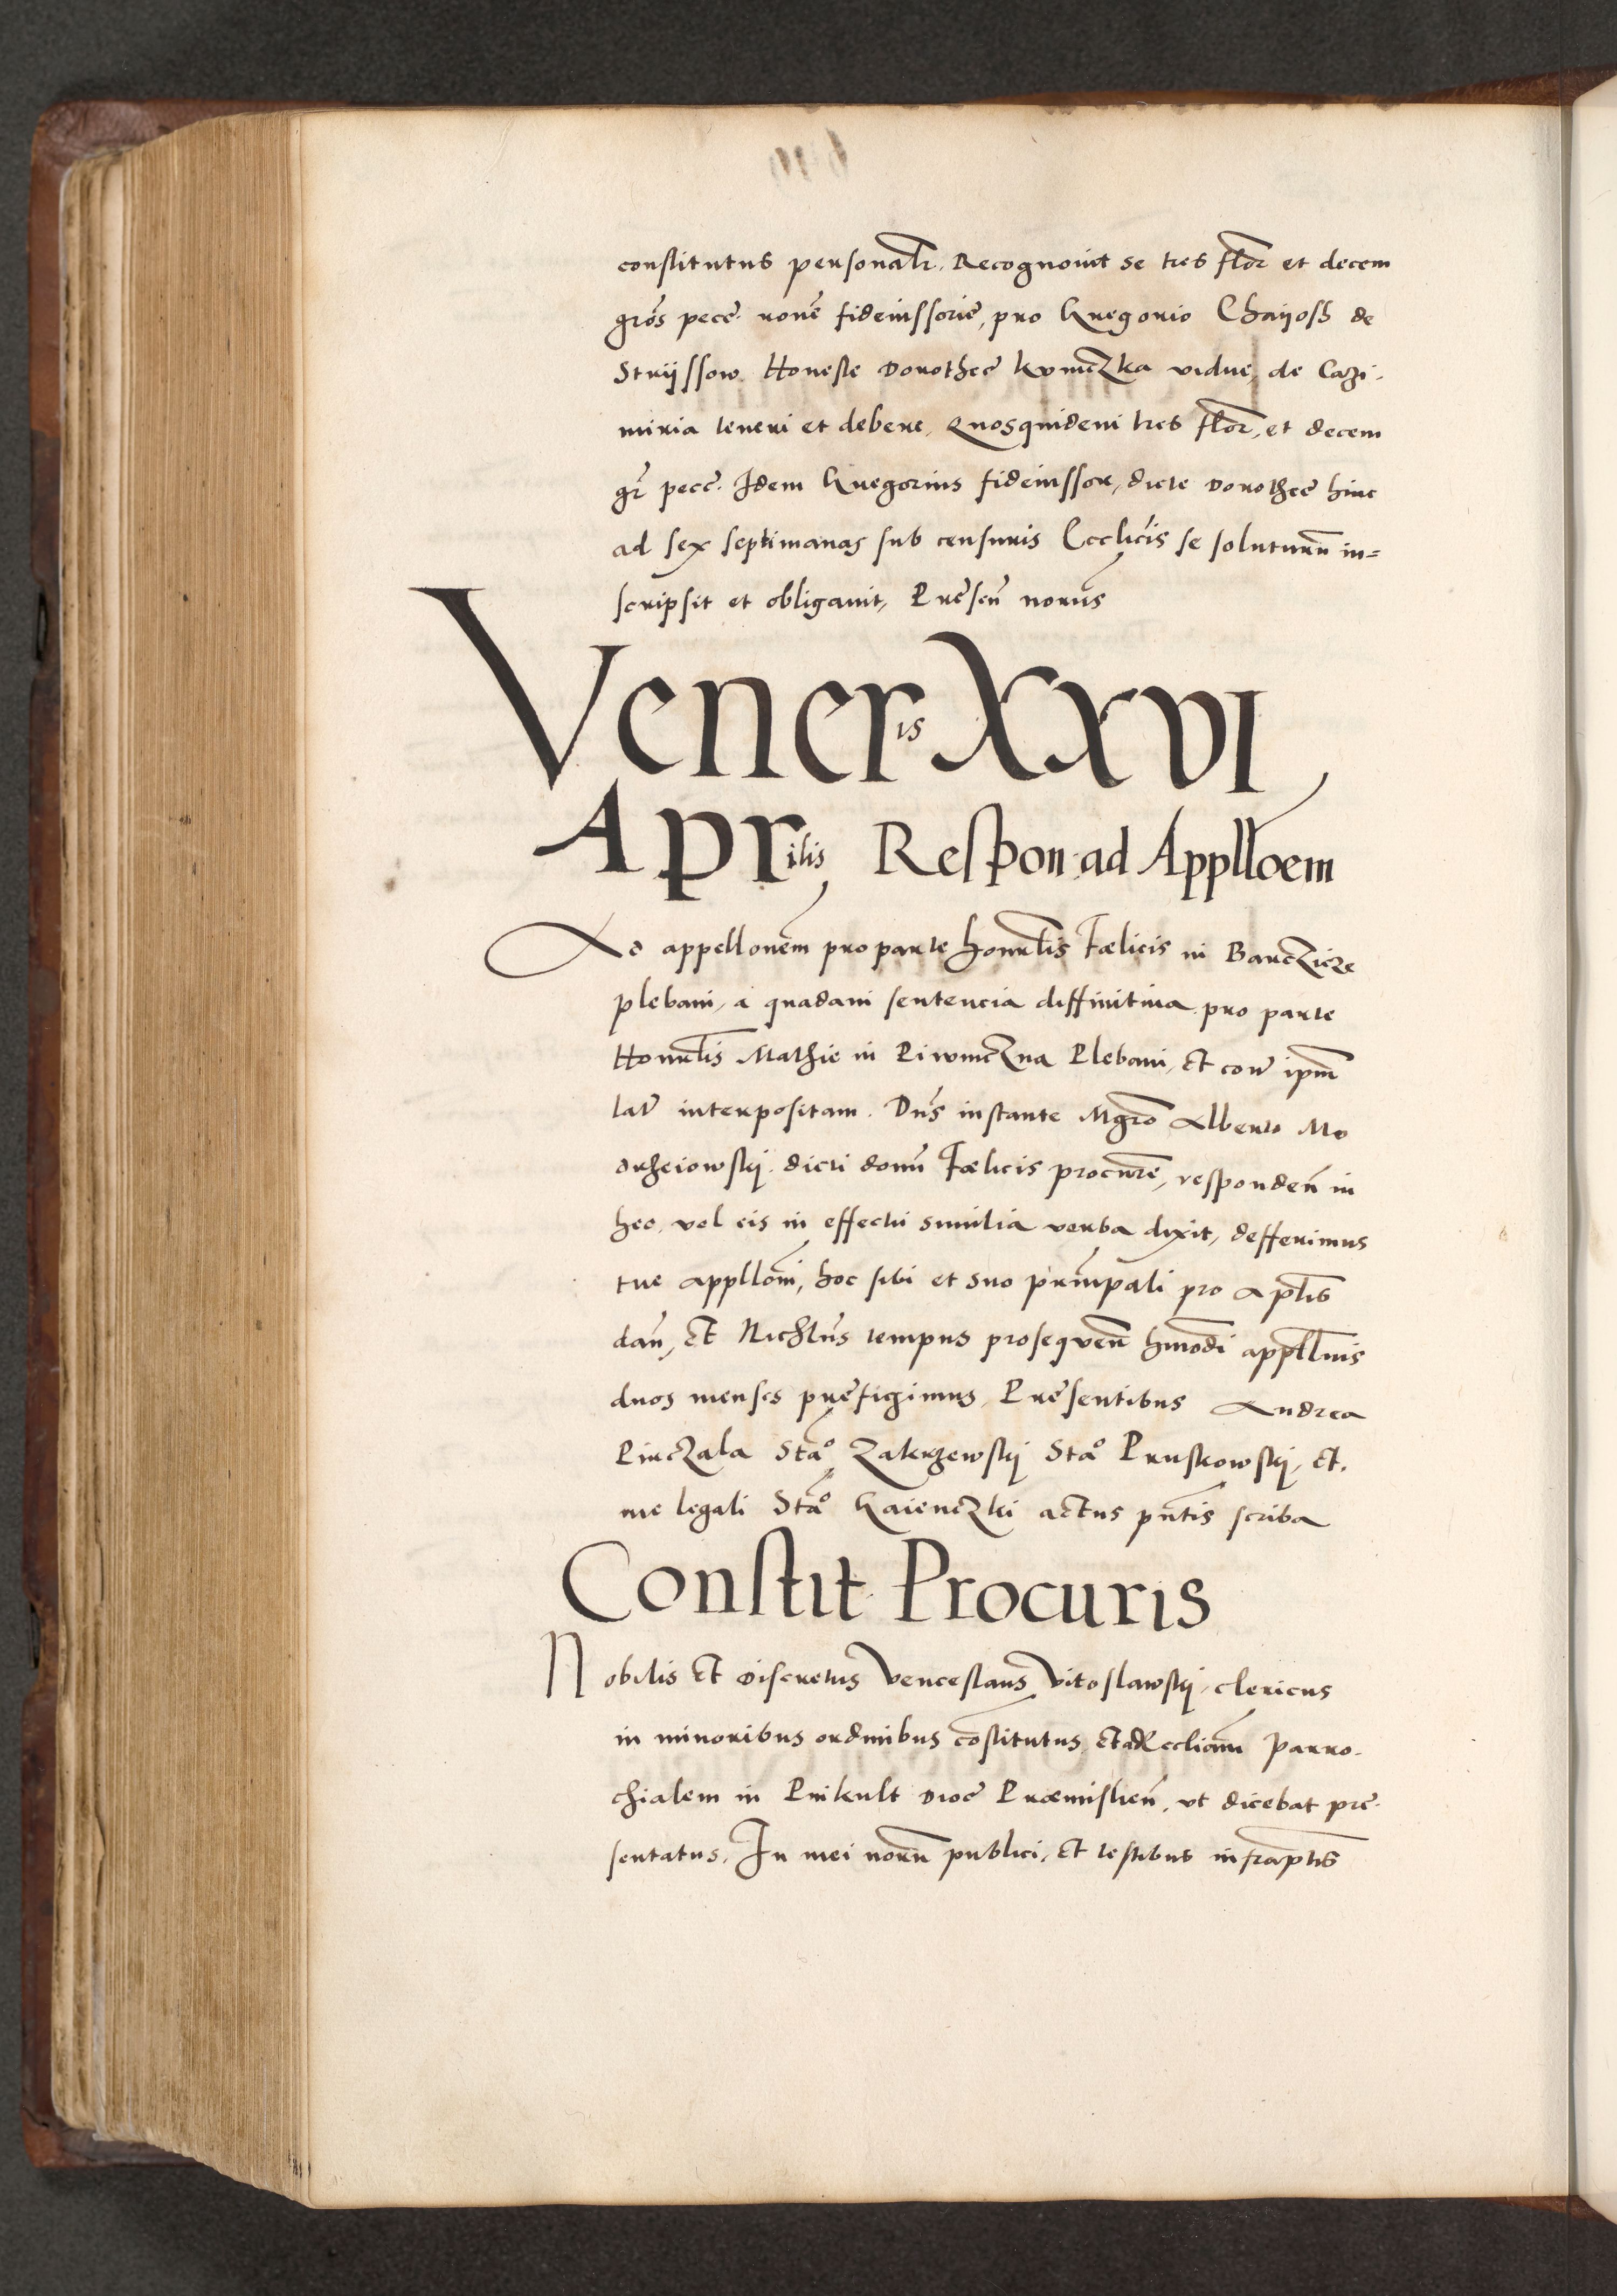 constitutus personalr. Recognovit se tres flor et decem
gros pece. rone fideiussorie, pro Gregorio Chaijosh de
Strijssow Honeste Dorothee kvmczka vidue, de Cazi-
miria teneri et debere, Quosquidem tres flor, et decem
gr pece. Idem Gregorius fideiussor, dicte Dorothee hinc
ad sex septimanas sub censuris Ecclicis se soluturu in=
scripsit et obligavit, Presen norus
Veneris XXVI
Aprilis, Respon ad Applloem
Ad appellonem pro parte honrlis Fœlicis in Barczicze
plebani, a quadam sentencia diffinitiva pro parte
Honrlis Mathie in Piwniczna Plebani, et con ipm
lat interpositam. Dns instante Mgro Alberto Mo
drzeiowskij dicti domi Fœlicis procure, responden in
hec vel eis in effectu similia verba dixit, defferimus
tue applloni, hoc sibi et suo principali pro aplis
dan, et Nichlus tempus prosequen hmodi appllnis
duos menses prefigimus, Presentibus Andrea
Pirczala Stao Zakrzewskij Stao Pruskowskij, et
me legali Stao Gaienczki actus pntis scriba
Constit Procuris
Nobilis et discretus Venceslaus Vitoslawskij, clericus
in minoribus ordinibus costitutus, et ad Eccliam Parro-
chialem in Pnikult dioc Præmislien, ut dicebat pre-
sentatus, In mei noru publici, et testibus infraptis